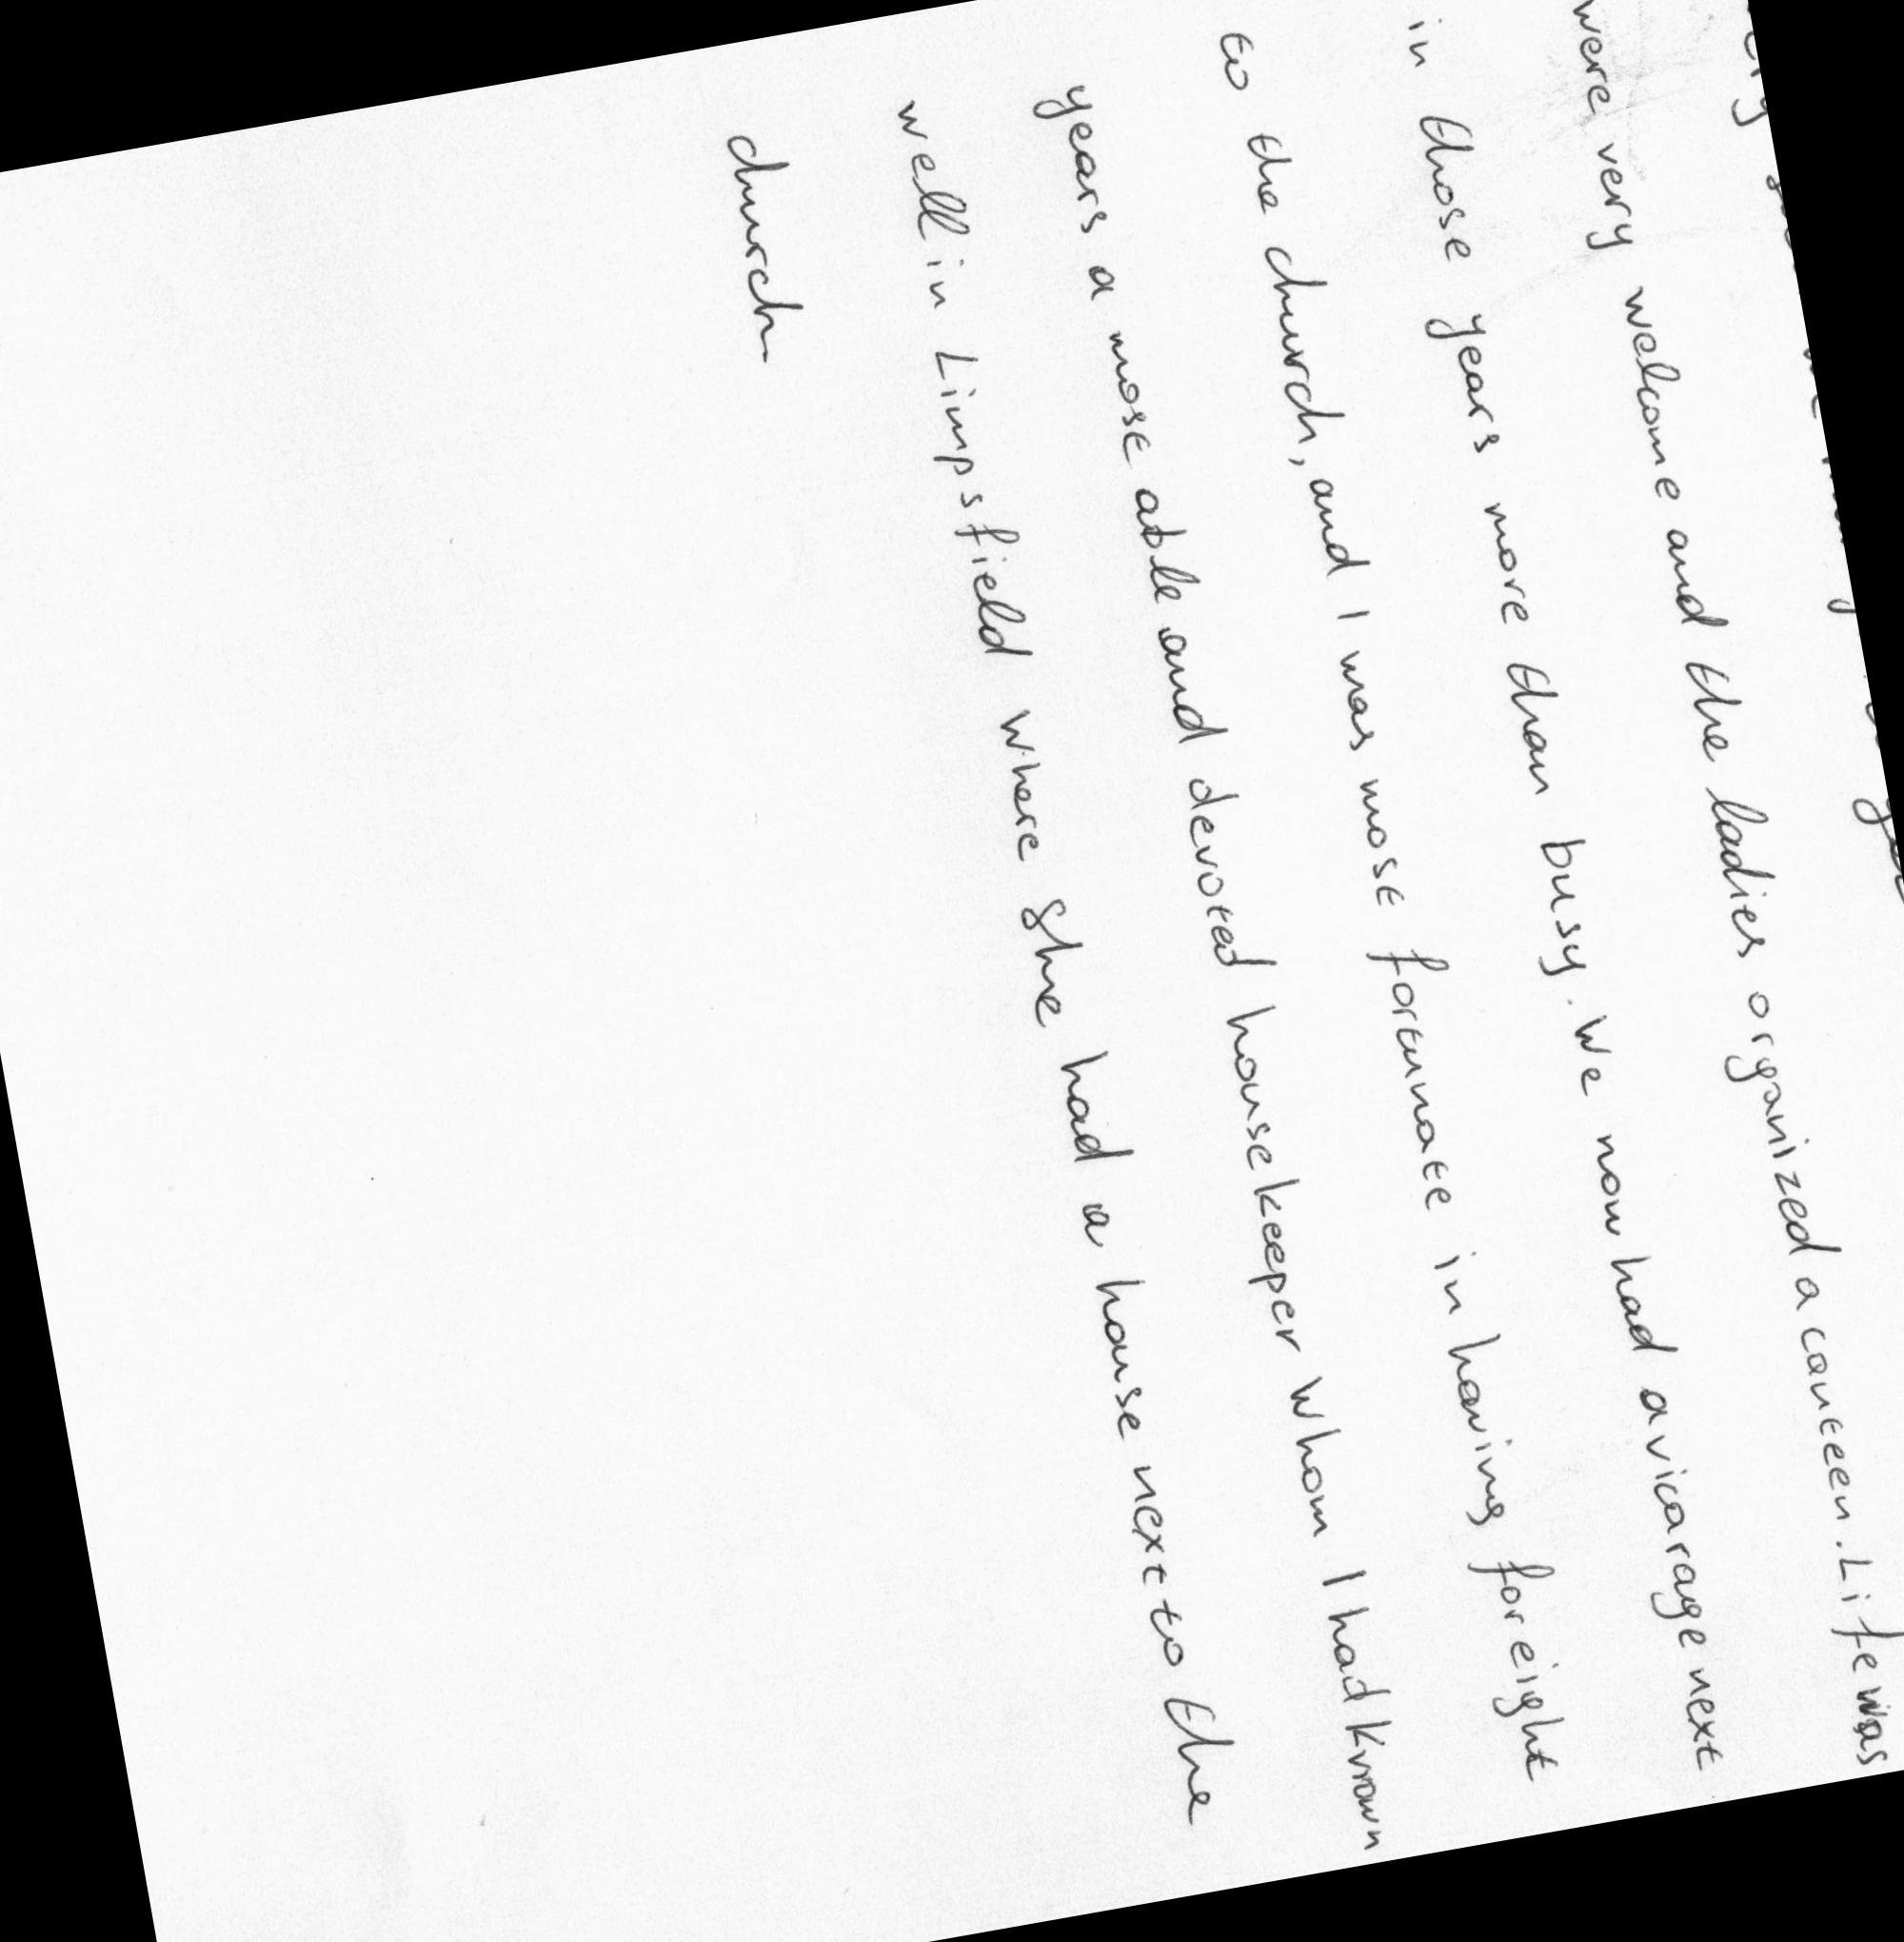 were very welcome and the ladies organized a canteen. Life was
in those years more than busy. We now had a vicarage next
to the church, and I was most fortunate in having for eight
years a most able and devoted housekeeper whom I had known
well in Limpsfield where she had a house next to the
church.